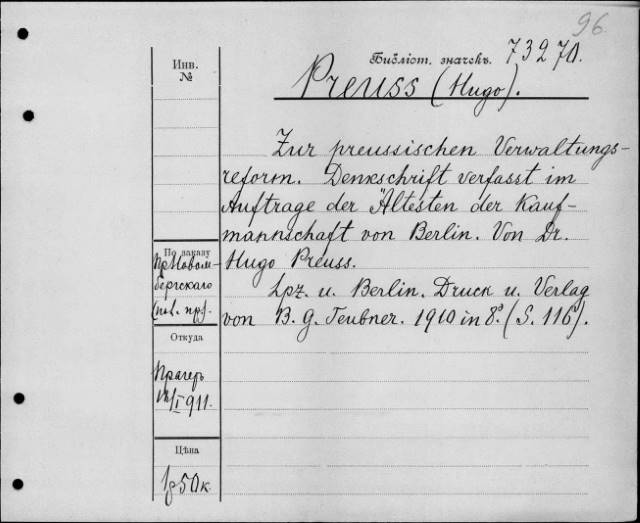 96
Библіот. значекъ. 73270.
Инв.
№
Preuss (Hugo).
Zur preussischen Verwaltungs-
reform. Denkschrift verfasst im
Auftrage der Ältesten der Kauf-
mannschaft von Berlin. Von Dr.
Hugo Preuss.
Lpz. u. Berlin. Druck u. Verlag
von B. G. Teubner. 1910 in 8°. (S. 116).
По заказу
бергскаго
Откуда
Прагеръ
1911.
Цѣна
1р 50к